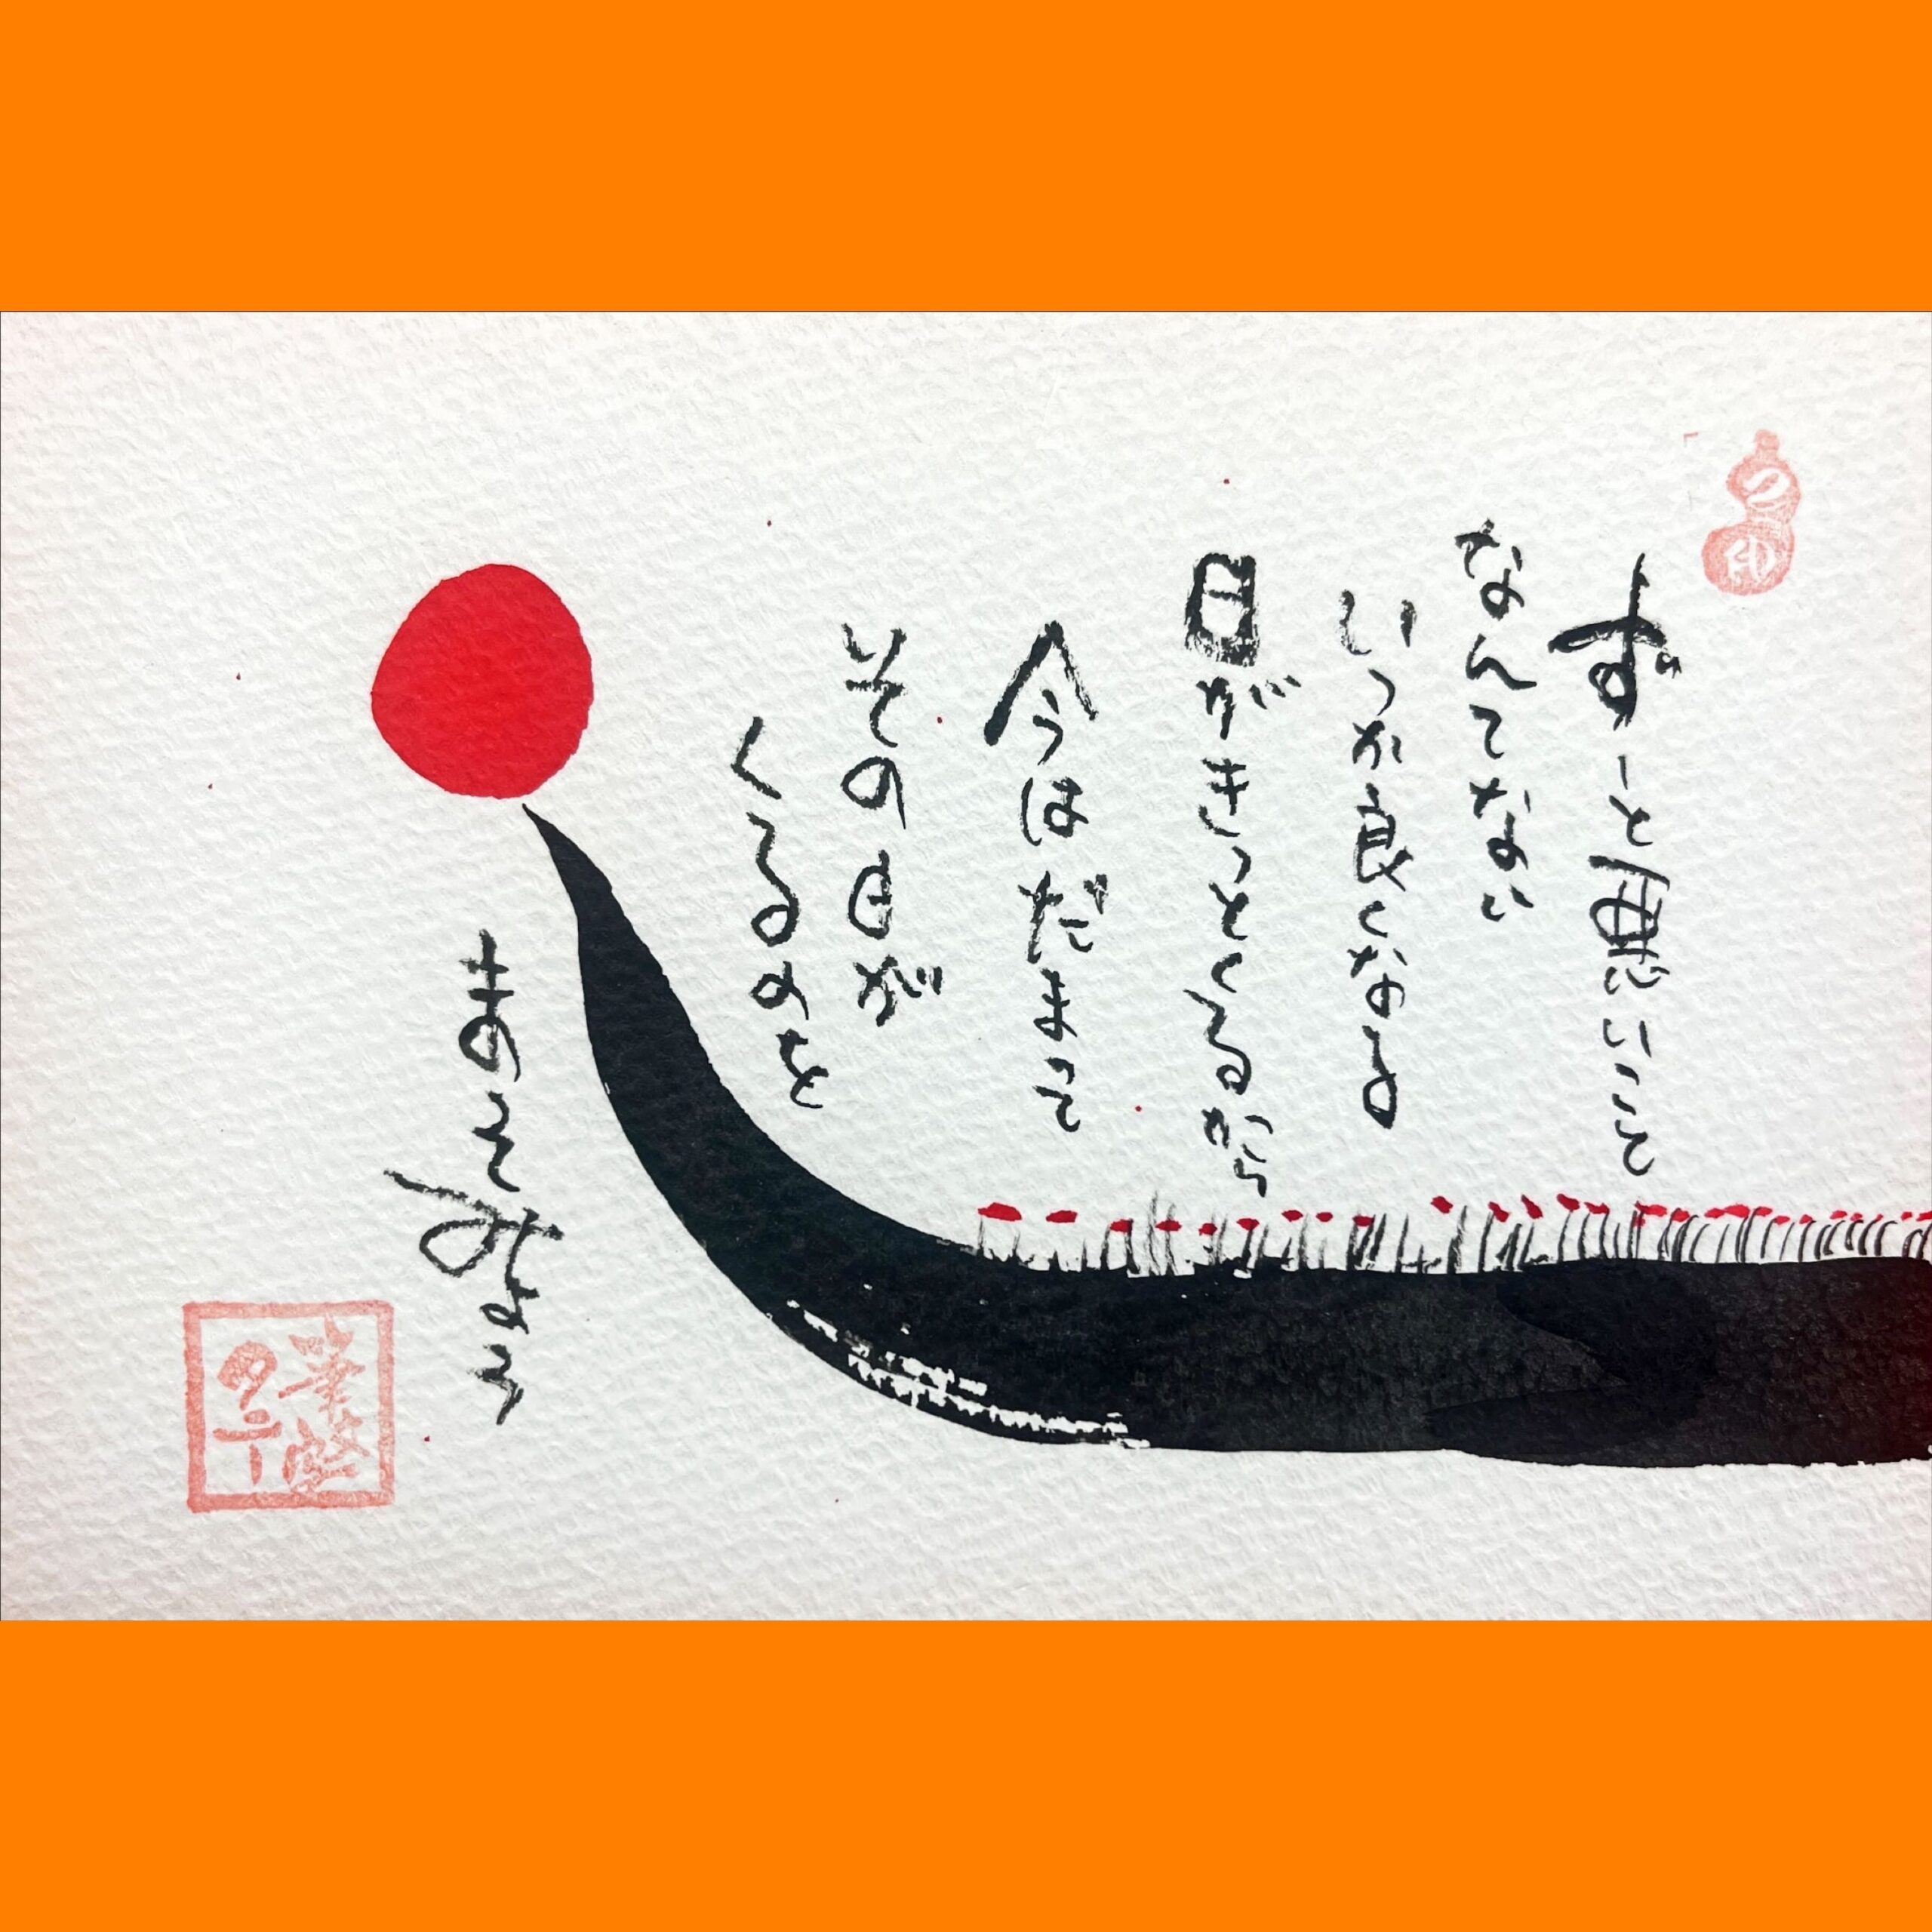 ずーと悪いこと
なんてない
いつか良くなる
日がきっとくるから
今はだまって
その日が
くるのを
まってみよう
筆
タニー